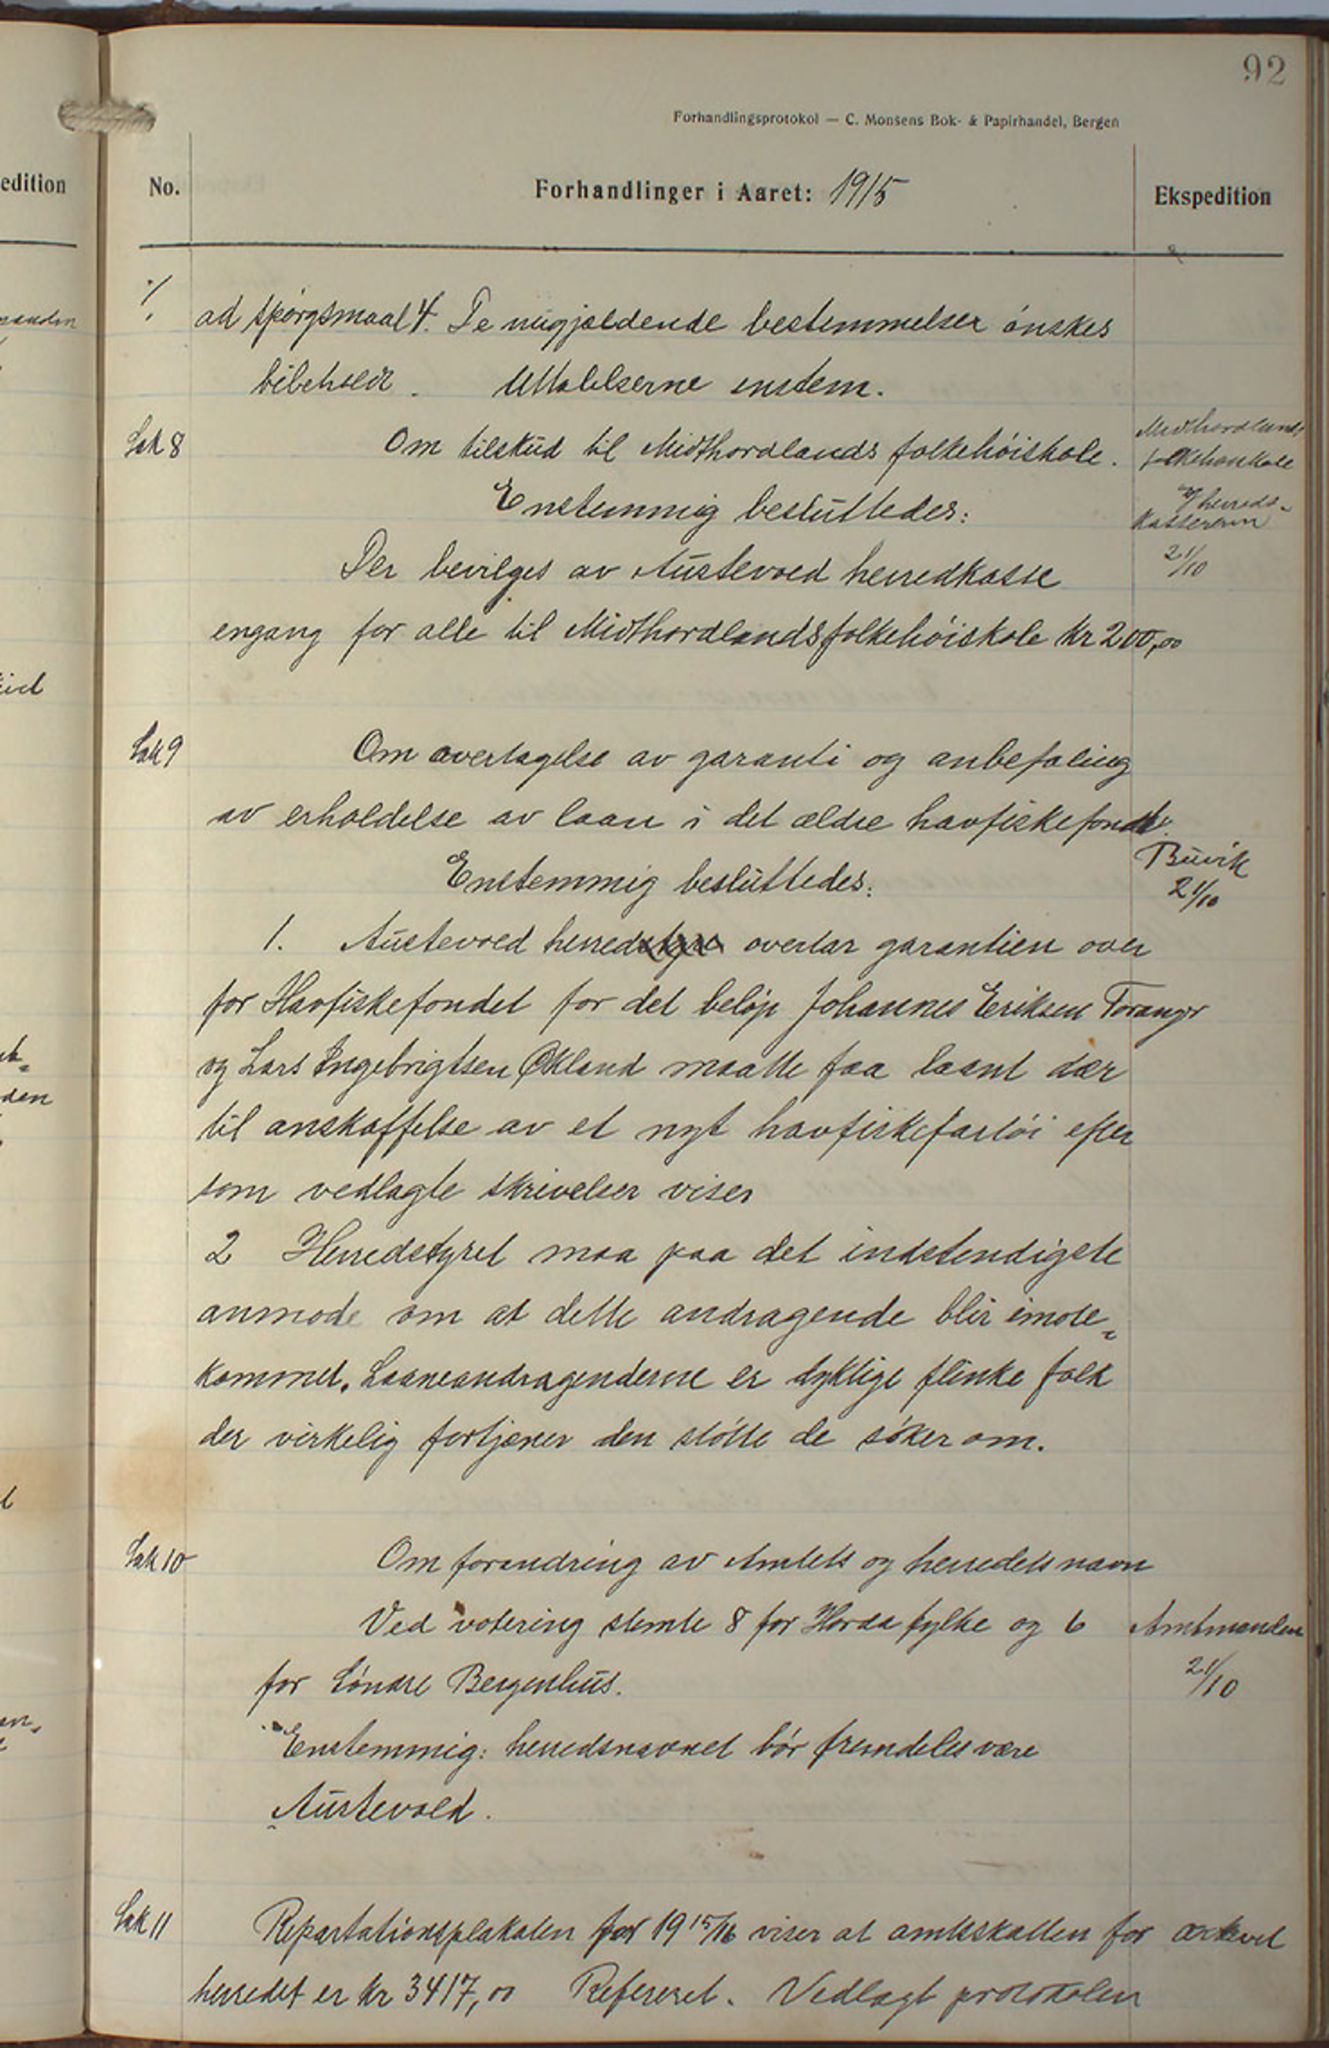 92
Forhandlingsprotokol — C. Monsens Bok- & Papirhandel, Bergen
edition
No.
Forhandlinger i Aaret: 1915
Ekspedition
ad spørgsmaal 4. De nugjældende bestemmelser ønskes
bibeholdt. Uttalelserne enstem.
Sak 8
Om tilskud til Midthordlands folkehøiskole.
Midthordlands
folkehøiskole
Enstemmig besluttedes:
og herreds-
kassereren
21/10
Der bevilges av Austevold herredkasse
engang for alle til Midthordlands folkehøiskole kr 200,00
Sak 9
Om overtagelse av garanti og anbefaling
av erholdelse av laan i det ældre havfiskefond.
Enstemmig besluttedes:
Buvik
21/10
1. Austevold herred overtar garantien over
for Havfiskefondet for det beløp Johannes Eriksen Toranger
og Lars Ingebrigtsen Økland maatte faa laant dær
til anskaffelse av et nyt havfiskefartøi efter
som vedlagte skrivelser viser
2 Herredstyret maa paa det indstendigste
anmode om at dette andragende blir imøte-
kommet. Laaneandragenderne er dyktige flinke folk
der virkelig fortjener den støtte de søker om.
Sak 10
Om forandring av Amtets og herredets navn
Ved votering stemte 8 for Horda fylke og 6
Amtmanden
21/10
for Søndre Bergenhus.
Enstemmig: herredsnavnet bør fremdeles være
Austevold.
Sak 11
Repartationsplakaten for 1915/16 viser at amtskatten for
herredet er kr 3417,00 Referert. Vedlagt protokolen